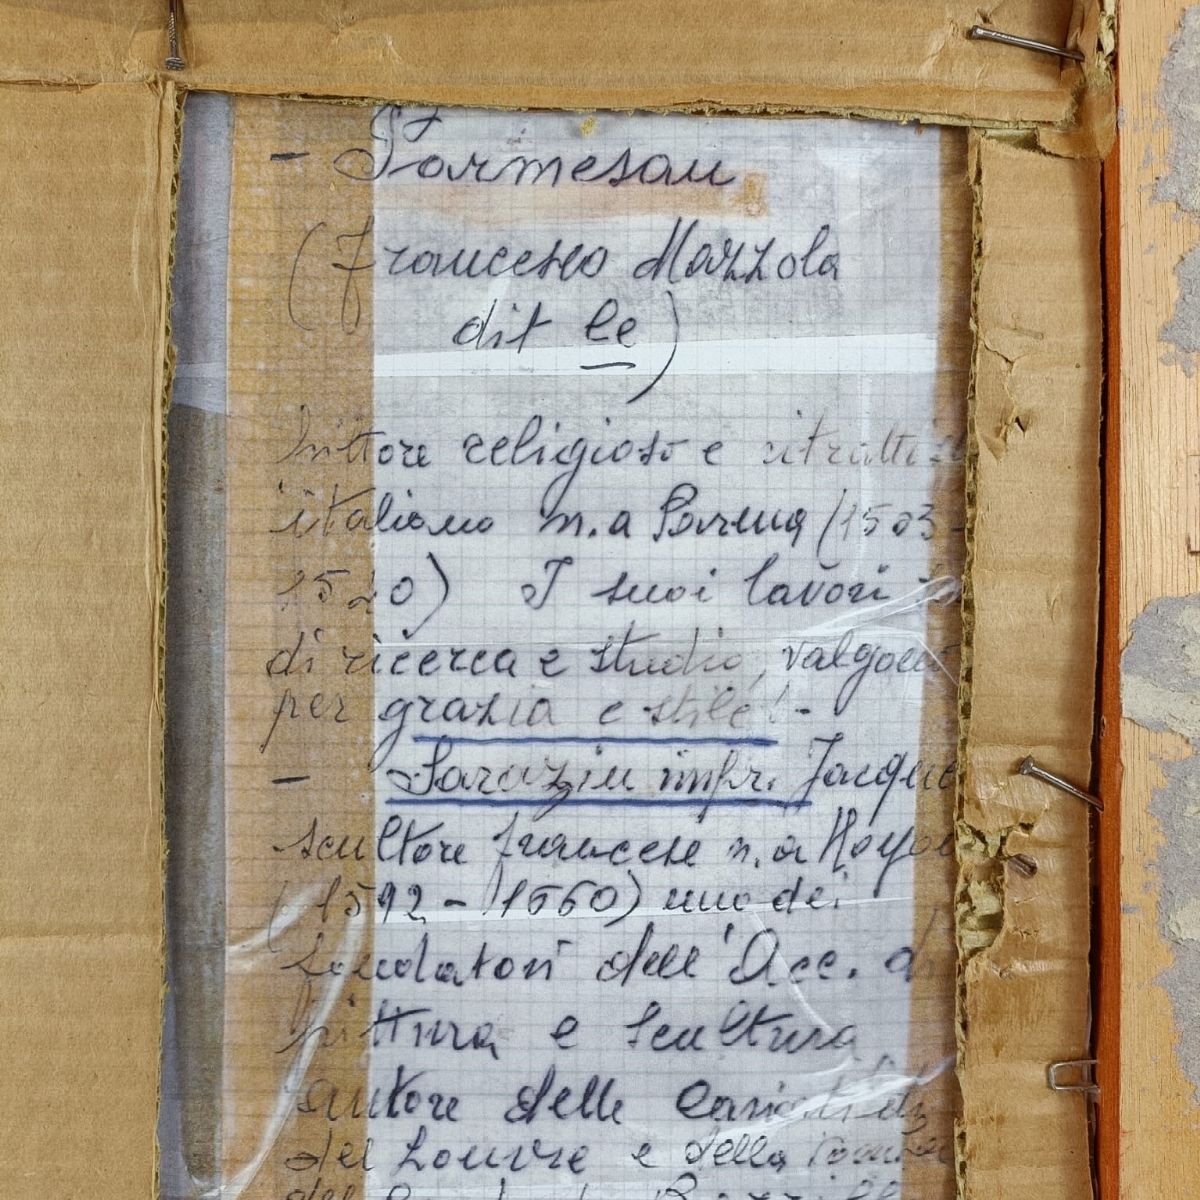 - Parmesan
(Francesco Mazzola
dit le)
Pittore religioso e
italiano n. a Parma (1503 -
1520) I suoi lavori
di ricerca e studio, valgono
per grazia e stile! -
- Sarazin impr. Jacques
scultore francese n. a Noyon
(1592 - 1660) uno dei
fondatori dell'Acc. di
pittura e scultura,
autore delle Cariatidi
del Louvre e della
del